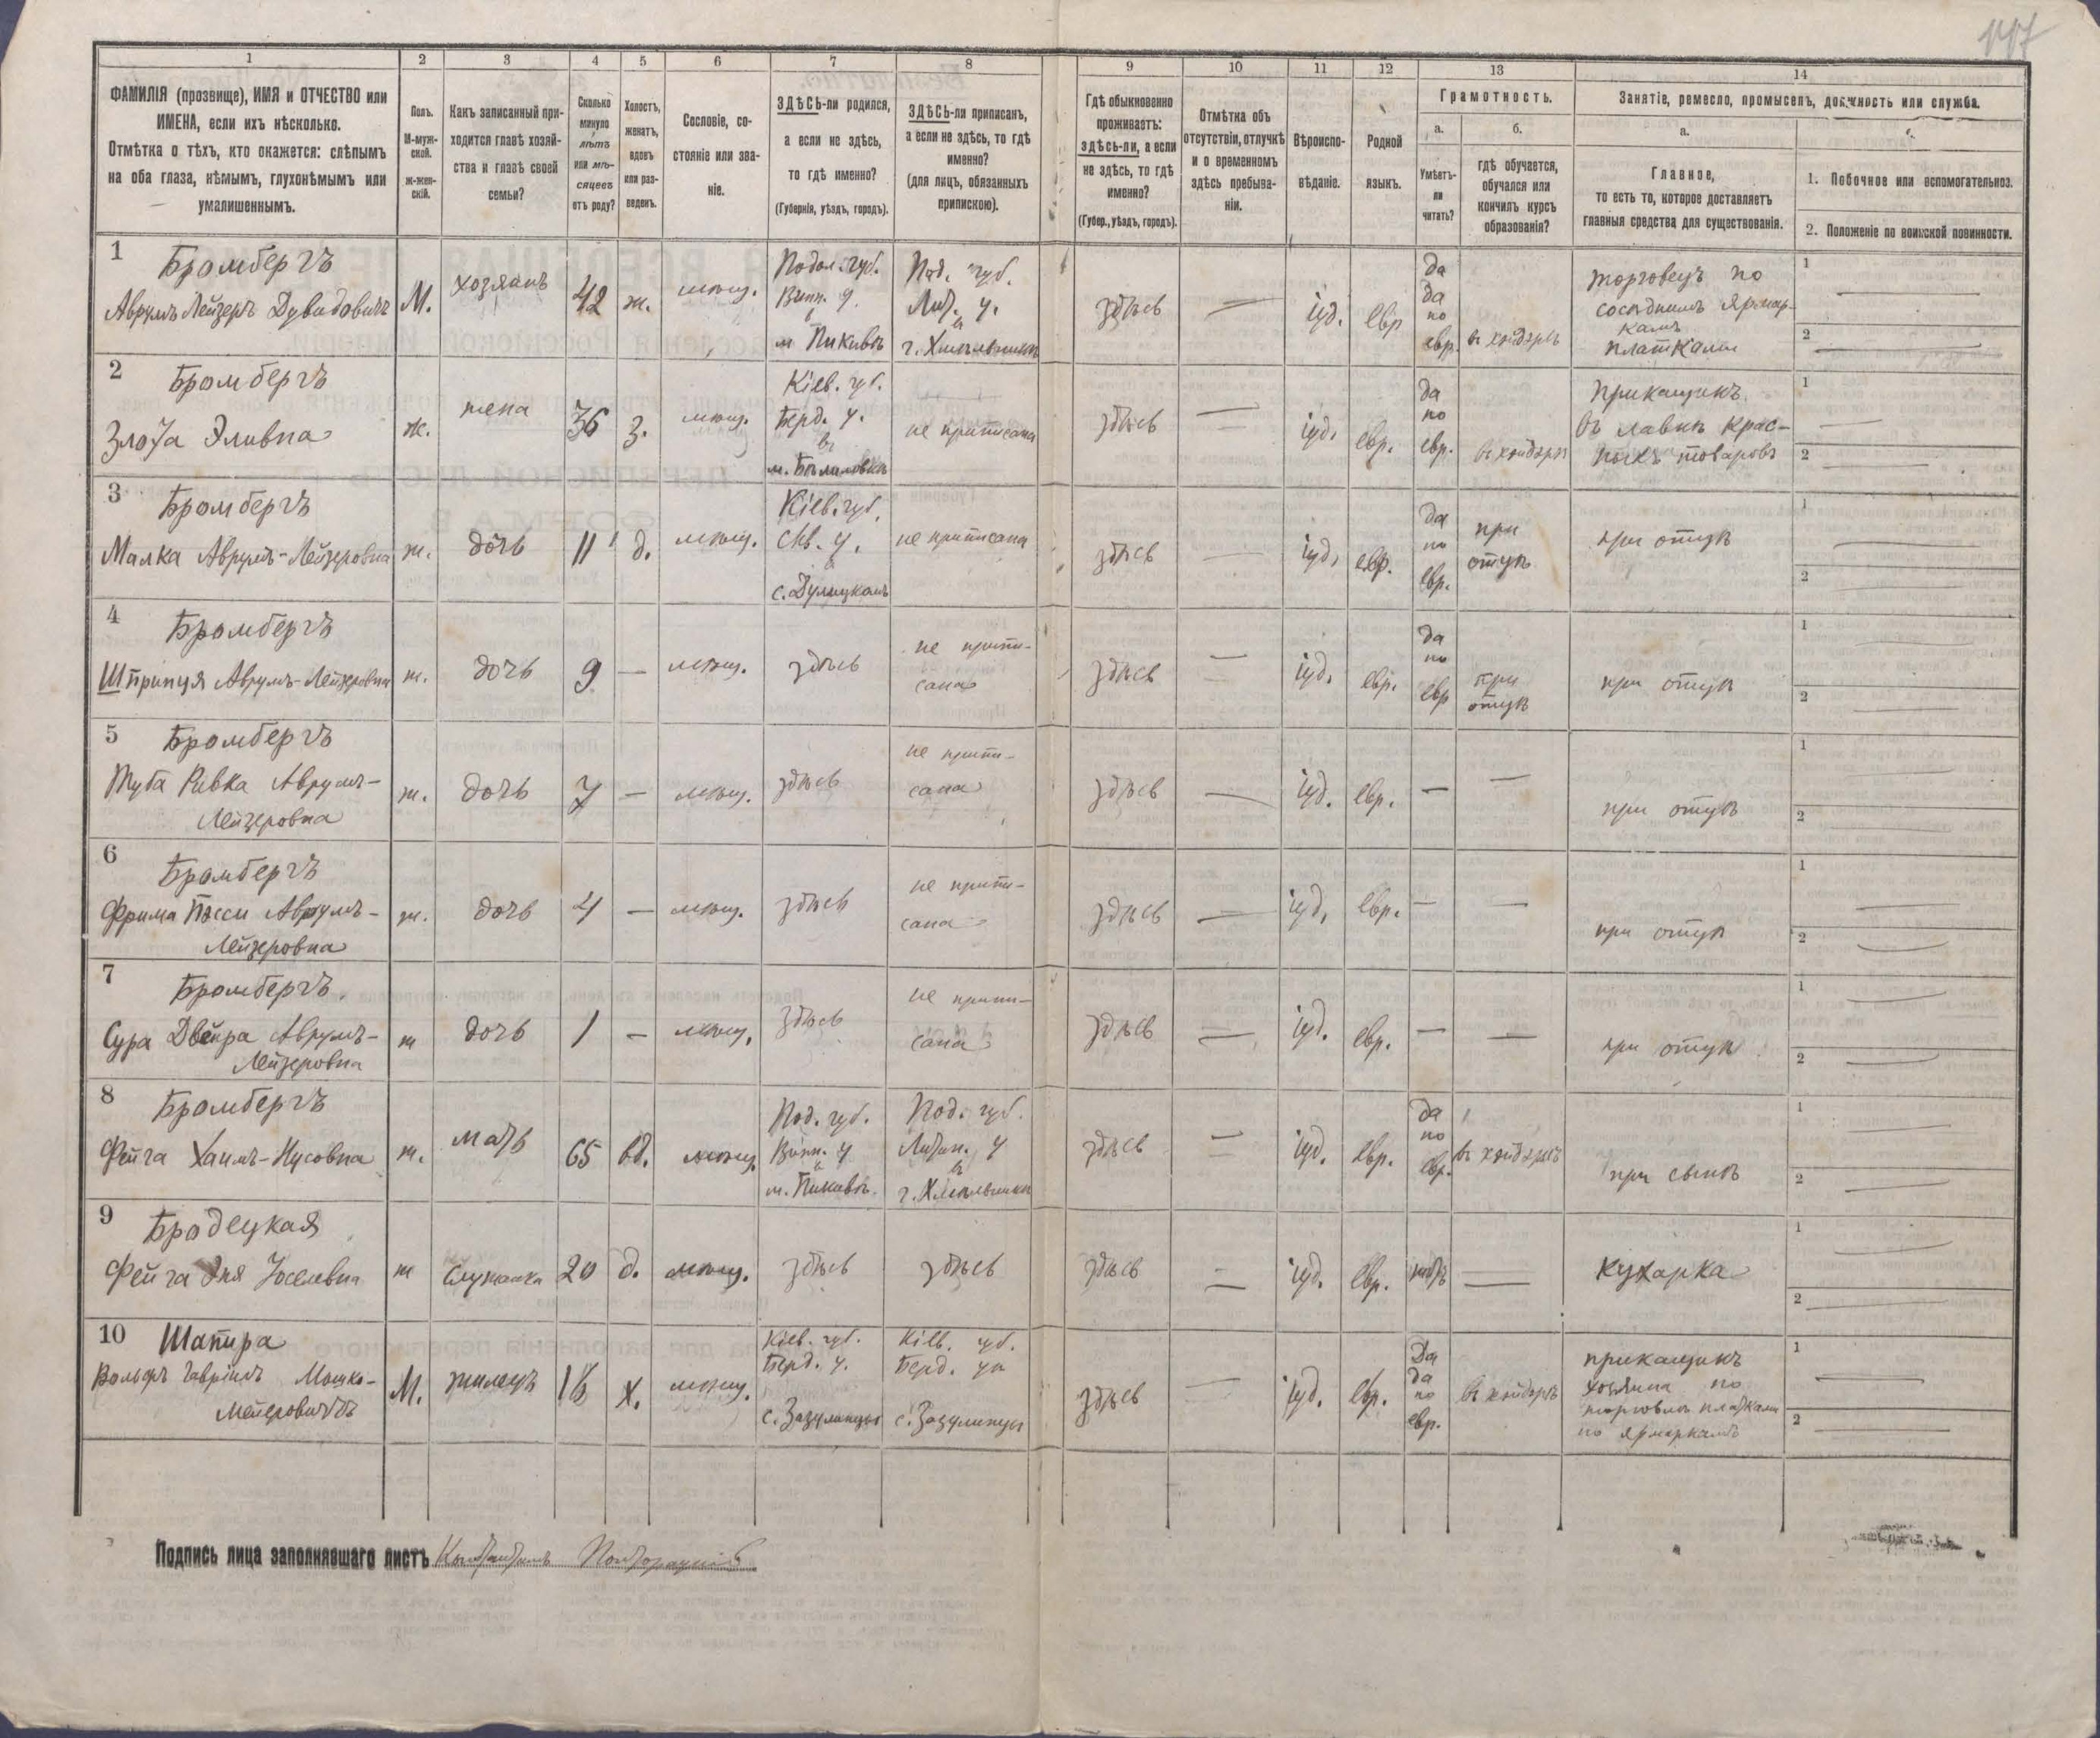 1 2 3 4 5 6 7 8 9 10 11 12 13 14
ФАМИЛІЯ (прозвище), ИМЯ и ОТЧЕСТВО или
ИМЕНА, если ихъ нѣсколько.
Отмѣтка о тѣхъ, кто окажется: слѣпымъ
на оба глаза, нѣмымъ, глухонѣмымъ или
умалишеннымъ.
Полъ.
М-муж-
ской.
ж-жен-
скій.
Какъ записанный при-
ходится главѣ хозяй-
ства и главѣ своей
семьи?
Сколько
минуло
лѣтъ
или мѣ-
сяцевъ
отъ роду?
Холостъ,
женатъ,
вдовъ
или раз-
веденъ.
Сословіе, со-
стояніе или зва-
ніе.
ЗДѢСЬ-ли родился,
а если не здѣсь,
то гдѣ именно?
(Губернія, уѣздъ, городъ).
ЗДѢСЬ-ли приписанъ,
а если не здѣсь, то гдѣ
именно?
(для лицъ, обязанныхъ
припискою).
Гдѣ обыкновенно
проживаетъ:
здѣсь-ли, а если
не здѣсь, то гдѣ
именно?
(Губер., уѣздъ, городъ).
Отмѣтка объ
отсутствіи, отлучкѣ
и о временномъ
здѣсь пребыва-
ніи.
Вѣроиспо-
вѣданіе.
Родной
языкъ.
Грамотность.
а.
Умѣетъ-
ли
читать?
б.
гдѣ обучается,
обучался или
кончилъ курсъ
образованія?
Занятіе, ремесло, промыселъ, должность или служба.
а.
Главное,
то есть то, которое доставляетъ
главныя средства для существованія.
1. Побочное или вспомогательное.
2. Положеніе по воинской повинности.
1 Бромбергъ
Аврумъ Лейзеръ Дувидовичъ
М.
хозяинъ
42
ж.
мѣщ.
Подол. губ.
Винн. у.
в
м Пиковѣ
Под. губ.
Лит. у.
в
г. Хмѣльникѣ
здѣсь
—
іуд.
евр
да
да
по
евр.
въ хейдерѣ
торговецъ по
сосѣднимъ Ярмар-
камъ
платками
1
2
2 Бромбергъ
Злота Эливна
ж.
жена
36
з.
мѣщ.
Кіев. губ.
Берд. у.
в
м. Бѣлиловкѣ
не приписана
здѣсь
—
іуд.
евр.
да
по
евр.
въ хейдерѣ
Прикащикъ
въ лавкѣ крас-
ныхъ товаровъ
1
2
3 Бромбергъ
Малка Аврумъ-Лейзеровна
ж.
дочь
11
д.
мѣщ.
Кіев. губ.
Скв. у.
в
не приписана
здѣсь
—
іуд.
евр.
да
по
евр.
при
отцѣ
при отцѣ
1
2
4 Бромбергъ
Шпринця Аврумъ-Лейзеровна
ж.
дочь
9
—
мѣщ.
здѣсь
не припи-
сана
здѣсь
—
іуд.
евр.
да
по
евр
при
отцѣ
при отцѣ
1
2
5 Бромбергъ
Туба Ривка Аврумъ-
Лейзеровна
ж.
дочь
7
—
мѣщ.
здѣсь
не припи-
сана
здѣсь
—
іуд.
евр.
—
—
при отцѣ
1
2
6 Бромбергъ
Фрима Песси Аврумъ-
Лейзеровна
ж.
дочь
4
—
мѣщ.
здѣсь
не припи-
сана
здѣсь
—
іуд.
евр.
—
—
при отцѣ
1
2
7 Бромбергъ
Сура Двейра Аврумъ-
Лейзеровна
ж
дочь
1
—
мѣщ.
здѣсь
не припи-
сана
здѣсь
—
іуд.
евр.
—
—
при отцѣ
1
2
8 Бромбергъ
Фейга Хаимъ-Нусовна
ж.
мать
65
вд.
мѣщ.
Под. губ.
Винн. у
в
м. Пиковѣ.
Под. губ.
Литин. у
в
г. Хмѣльникѣ
здѣсь
—
іуд.
евр.
да
по
евр.
въ хейдерѣ
при сынѣ
1
2
9 Бродецкая
Фейга Эня Іоселевна
ж
служанка
20
д.
мѣщ.
здѣсь
здѣсь
здѣсь
—
іуд.
евр.
нѣтъ
—
Кухарка
1
2
10 Шапира
Вольфъ Гавріилъ Мошко-
Мейеровичъ
М.
жилецъ
х.
мѣщ.
Кіев. губ.
Берд. у.
с. Зазулинцы
Кіев. губ.
Берд. уѣ
с. Зазулинцы
здѣсь
—
іуд.
евр.
Да
да
по
евр.
въ хейдерѣ
прикащикъ
хозяина по
торговлѣ платками
по ярмаркамъ
1
2
Подпись лица заполнявшаго листъ